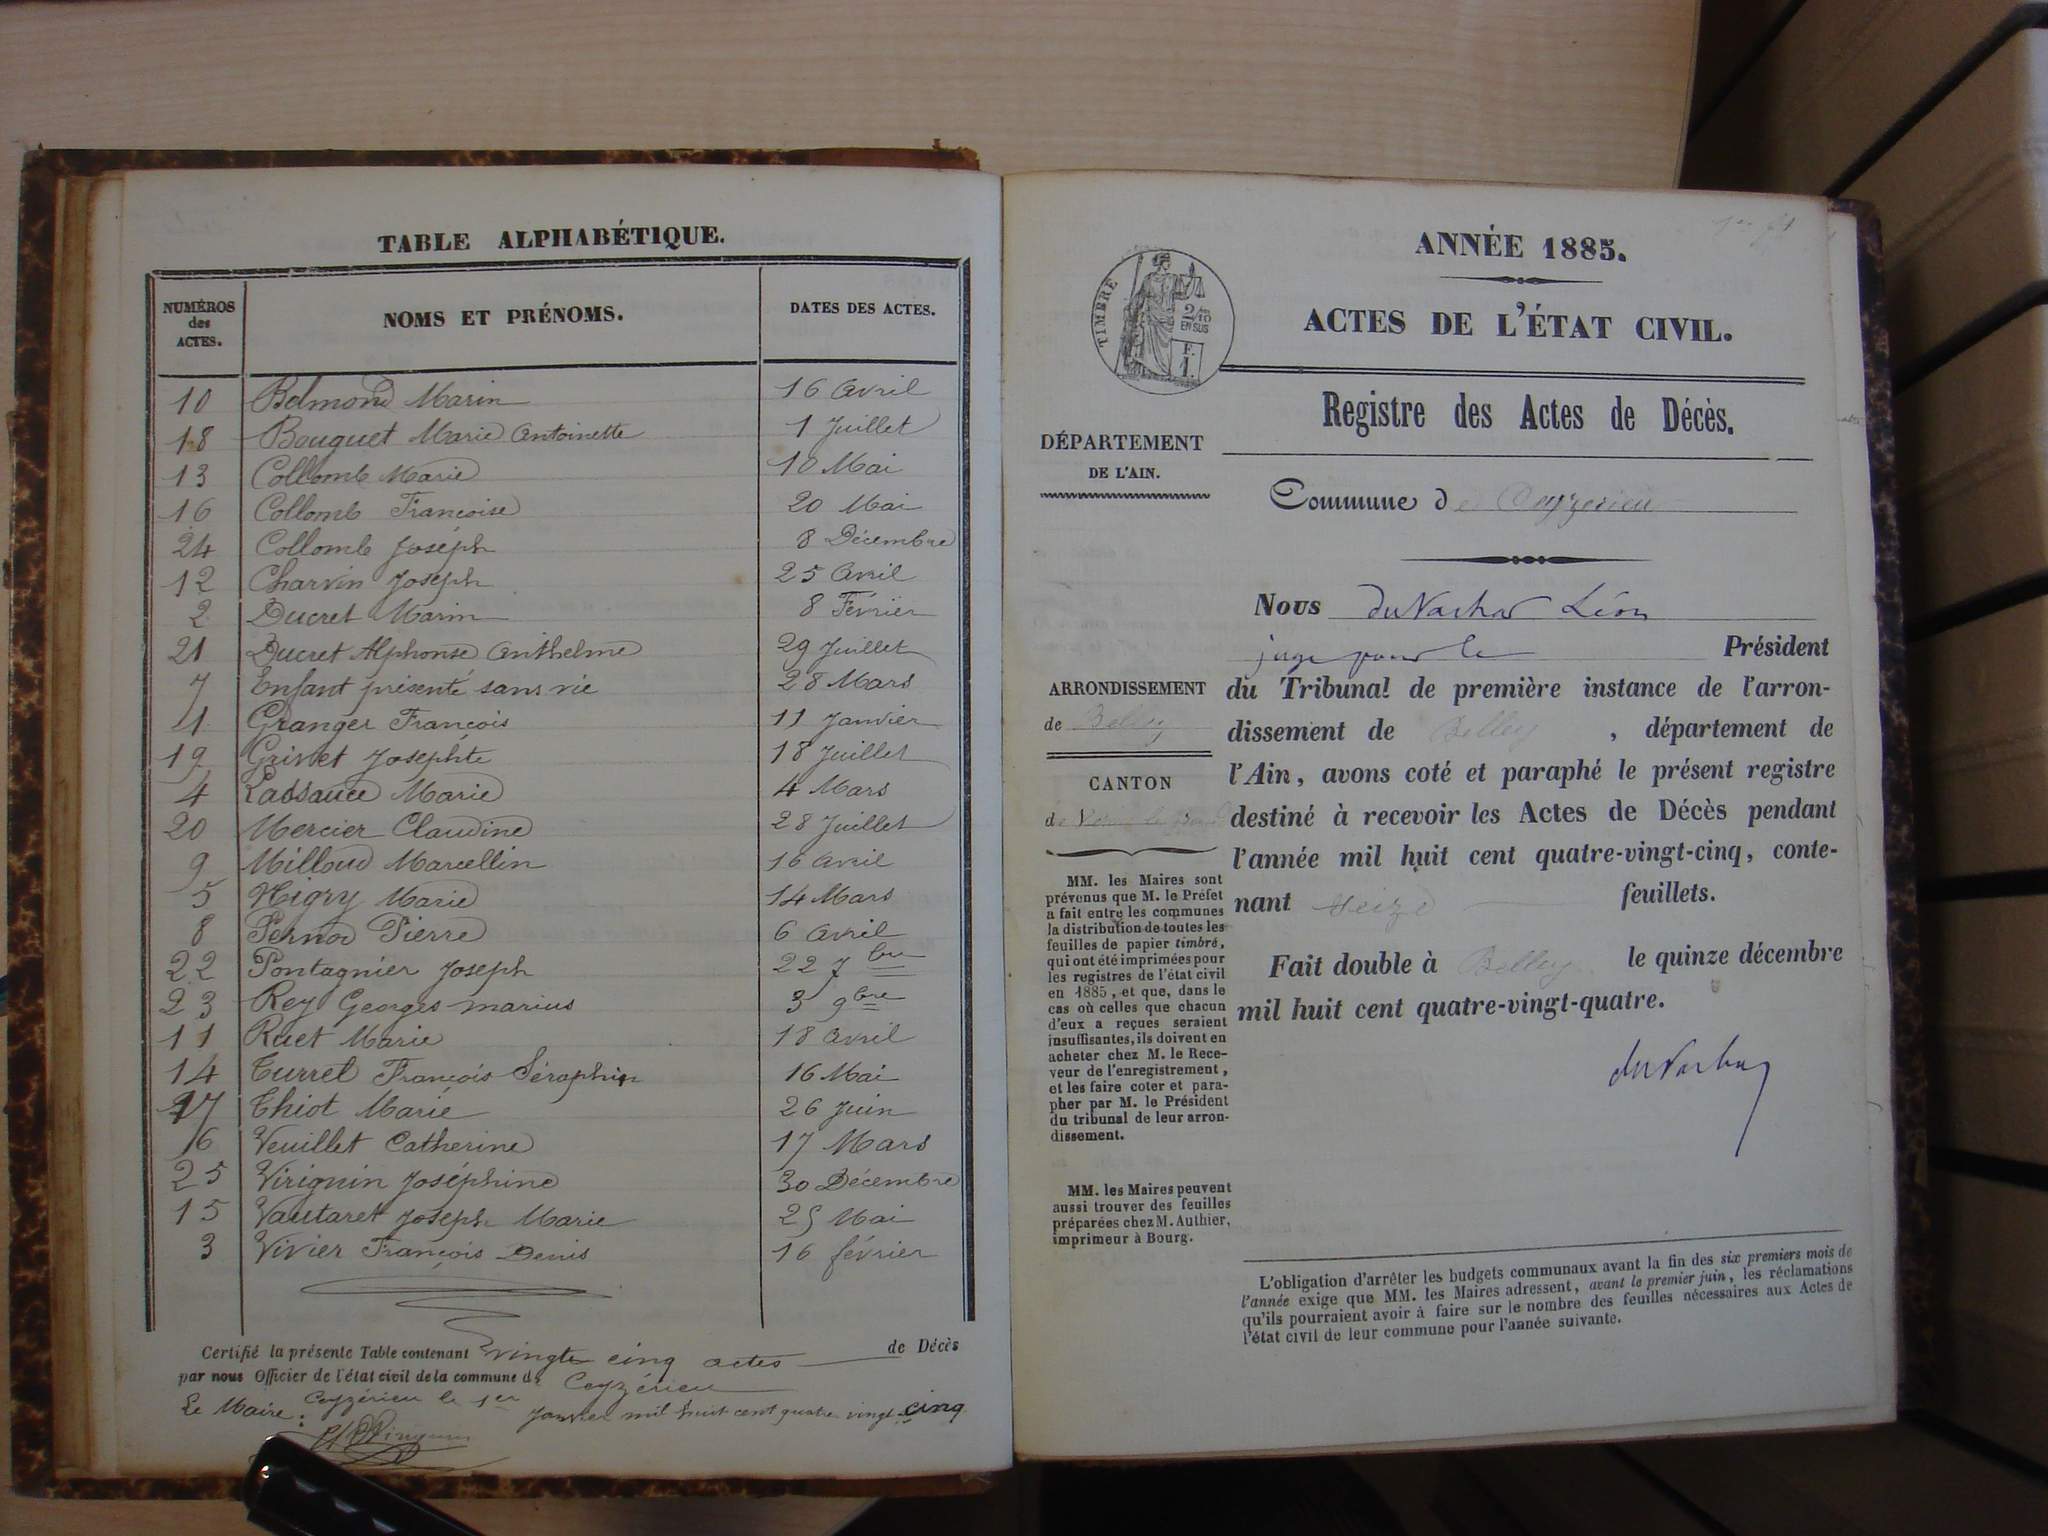 TABLE ALPHABÉTIQUE.
NUMÉROS des ACTES. NOMS ET PRÉNOMS. DATES DES ACTES.
10 Belmond Marin 16 Avril
18 Bouquet Marie Antoinette 1 Juillet
13 Collomb Marie 10 Mai
16 Collomb Françoise 20 Mai
24 Collomb Joseph 8 Décembre
12 Charvin Joseph 25 Avril
2 Ducret Marin 8 Février
21 Ducret Alphonse Anthelme 29 Juillet
7 Enfant présenté sans vie 28 Mars
1 Granger François 11 Janvier
19 Grivet Josephte 18 Juillet
4 Lassauce Marie 4 Mars
20 Mercier Claudine 28 Juillet
9 Milloud Marcellin 16 Avril
5 Nigry Marie 14 Mars
8 Pernod Pierre 6 Avril
22 Pontagnier Joseph 22 7bre
23 Rey Georges Marius 3 9bre
11 Ruet Marie 18 Avril
14 Turrel François Séraphin 16 Mai
17 Thiot Marie 26 Juin
6 Veuillet Catherine 17 Mars
25 Virignin Joséphine 30 Décembre
15 Vautaret Joseph Marie 25 Mai
3 Vivier François Denis 16 février
Certifié la présente Table contenant vingt cinq actes de Décès
par nous Officier de l'état civil de la commune de Ceyzérieu
Ceyzérieu le 1er Janvier mil huit cent quatre vingt cinq
Le Maire:
ANNÉE 1885.
TIMBRE
2/10 EN SUS
F. 1.
ACTES DE L'ÉTAT CIVIL.
Registre des Actes de Décès.
DÉPARTEMENT
DE L'AIN.
Commune de Ceyzerieu
Nous Léon
juge pour le Président
ARRONDISSEMENT
de Belley
CANTON
de
du Tribunal de première instance de l'arron-
dissement de Belley, département de
l'Ain, avons coté et paraphé le présent registre
destiné à recevoir les Actes de Décès pendant
l'année mil huit cent quatre-vingt-cinq, conte-
nant seize feuillets.
Fait double à Belley le quinze décembre
mil huit cent quatre-vingt-quatre.
MM. les Maires sont
prévenus que M. le Préfet
a fait entre les communes
la distribution de toutes les
feuilles de papier timbré,
qui ont été imprimées pour
les registres de l'état civil
en 1885, et que, dans le
cas où celles que chacun
d'eux a reçues seraient
insuffisantes, ils doivent en
acheter chez M. le Rece-
veur de l'enregistrement,
et les faire coter et para-
pher par M. le Président
du tribunal de leur arron-
dissement.
MM. les Maires peuvent
aussi trouver des feuilles
préparées chez M. Authier,
imprimeur à Bourg.
L'obligation d'arrêter les budgets communaux avant la fin des six premiers mois de
l'année exige que MM. les Maires adressent, avant le premier juin, les réclamations
qu'ils pourraient avoir à faire sur le nombre des feuilles nécessaires aux Actes de
l'état civil de leur commune pour l'année suivante.